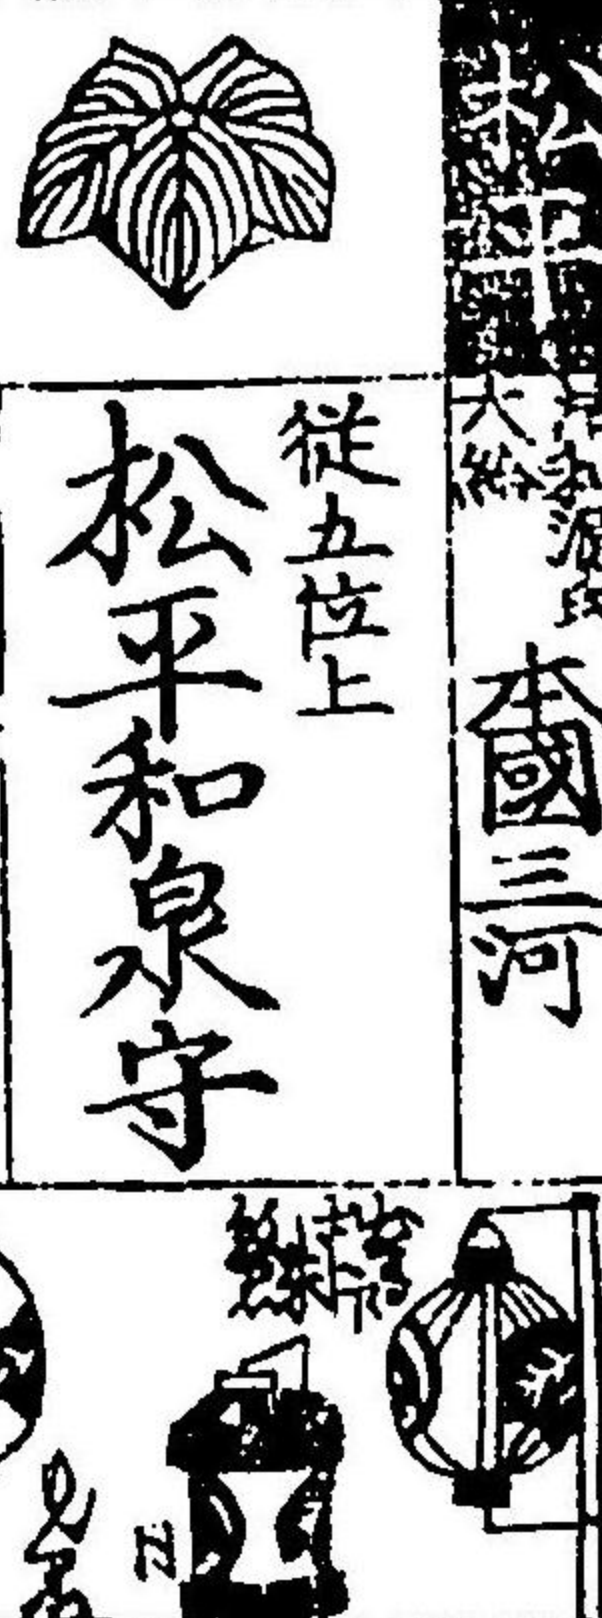 松平
大給
本國三河
従五位上
松平和泉守